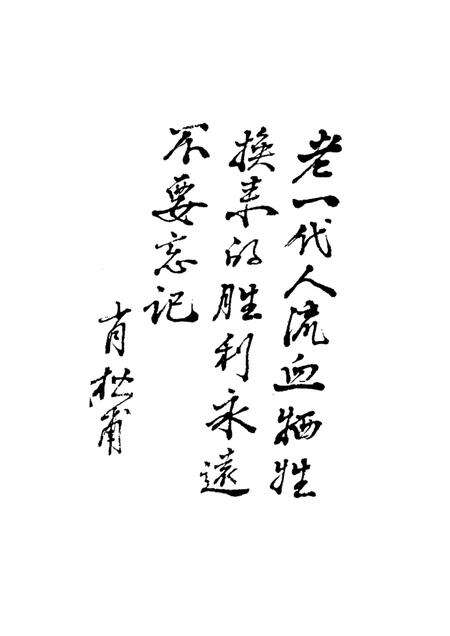 老一代人流血牺牲
换来的胜利永遠
不要忘记
肖松甫